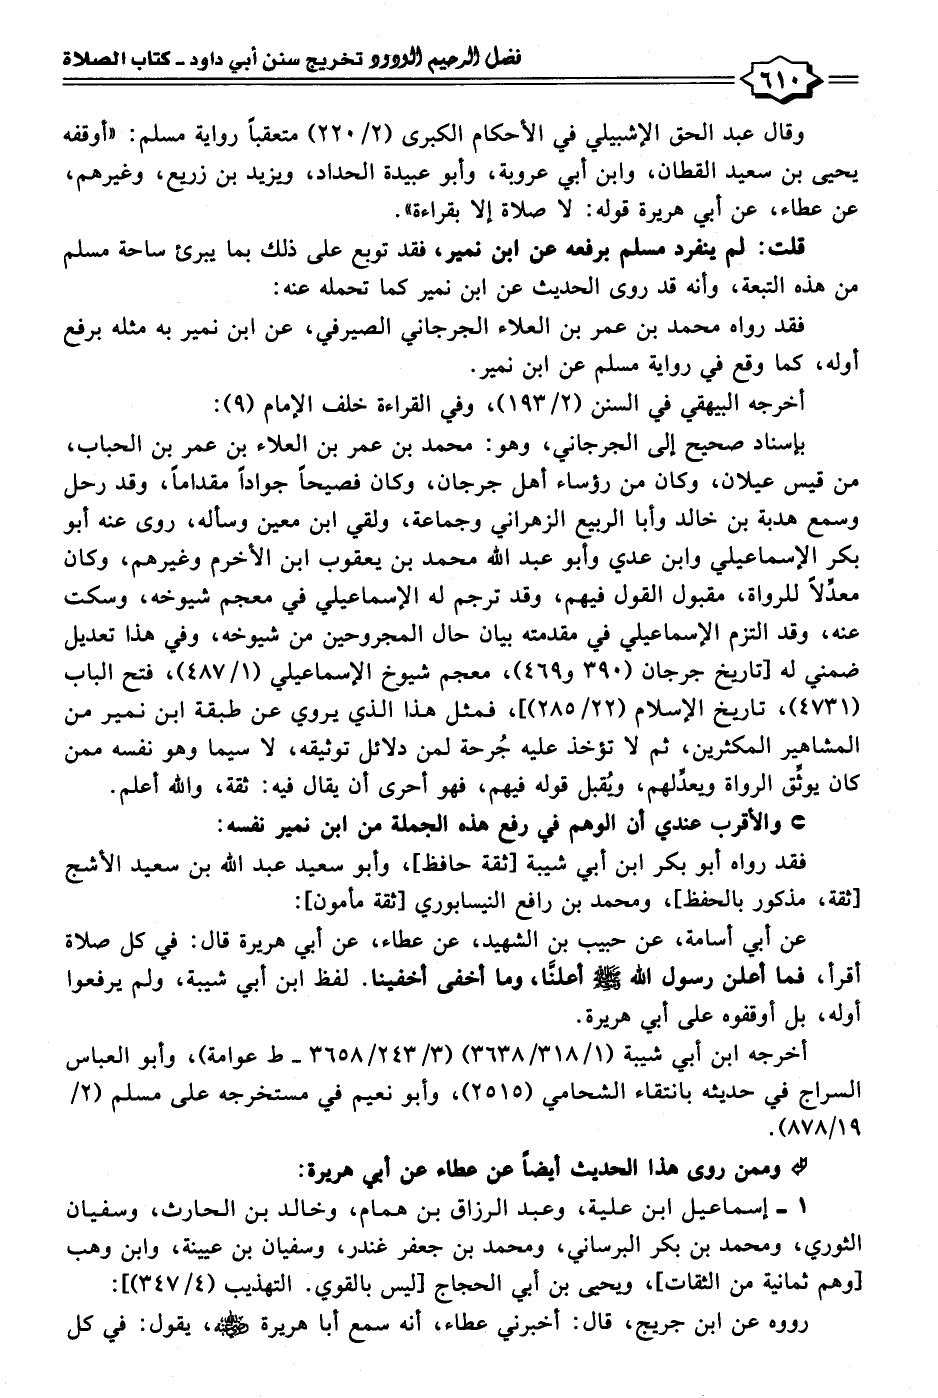 فضل الرحيم الودود تخريج سنن أبي داود - كتاب الصلاة
٦١٠
وقال عبد الحق الإشبيلي في الأحكام الكبرى (٢/ ٢٢٠) متعقباً رواية مسلم: «أوقفه
يحيى بن سعيد القطان، وابن أبي عروبة، وأبو عبيدة الحداد، ويزيد بن زريع، وغيرهم،
عن عطاء، عن أبي هريرة قوله: لا صلاة إلا بقراءة».
قلت: لم ينفرد مسلم برفعه عن ابن نمير، فقد توبع على ذلك بما يبرئ ساحة مسلم
من هذه التبعة، وأنه قد روى الحديث عن ابن نمير كما تحمله عنه:
فقد رواه محمد بن عمر بن العلاء الجرجاني الصيرفي، عن ابن نمير به مثله برفع
أوله، كما وقع في رواية مسلم عن ابن نمير.
أخرجه البيهقي في السنن (٢/ ١٩٣)، وفي القراءة خلف الإمام (٩):
بإسناد صحيح إلى الجرجاني، وهو: محمد بن عمر بن العلاء بن عمر بن الحباب،
من قيس عيلان، وكان من رؤساء أهل جرجان، وكان فصيحاً جواداً مقداماً، وقد رحل
وسمع هدبة بن خالد وأبا الربيع الزهراني وجماعة، ولقي ابن معين وسأله، روى عنه أبو
بكر الإسماعيلي وابن عدي وأبو عبد الله محمد بن يعقوب ابن الأخرم وغيرهم، وكان
معدِّلاً للرواة، مقبول القول فيهم، وقد ترجم له الإسماعيلي في معجم شيوخه، وسكت
عنه، وقد التزم الإسماعيلي في مقدمته بيان حال المجروحين من شيوخه، وفي هذا تعديل
ضمني له [تاريخ جرجان (٣٩٠ و٤٦٩)، معجم شيوخ الإسماعيلي (١/ ٤٨٧)، فتح الباب
(٤٧٣١)، تاريخ الإسلام (٢٢/ ٢٨٥)]، فمثل هذا الذي يروي عن طبقة ابن نمير من
المشاهير المكثرين، ثم لا تؤخذ عليه جُرحة لمن دلائل توثيقه، لا سيما وهو نفسه ممن
كان يوثِّق الرواة ويعدِّلهم، ويُقبل قوله فيهم، فهو أحرى أن يقال فيه: ثقة، والله أعلم.
والأقرب عندي أن الوهم في رفع هذه الجملة من ابن نمير نفسه:
فقد رواه أبو بكر ابن أبي شيبة [ثقة حافظ]، وأبو سعيد عبد الله بن سعيد الأشج
[ثقة، مذكور بالحفظ]، ومحمد بن رافع النيسابوري [ثقة مأمون]:
عن أبي أسامة، عن حبيب بن الشهيد، عن عطاء، عن أبي هريرة قال: في كل صلاة
أقرأ، فما أعلن رسول الله ﷺ أعلنَّا، وما أخفى أخفينا. لفظ ابن أبي شيبة، ولم يرفعوا
أوله، بل أوقفوه على أبي هريرة.
أخرجه ابن أبي شيبة (١/ ٣١٨/ ٣٦٣٨) (٣/ ٢٤٣/ ٣٦٥٨ - ط عوامة)، وأبو العباس
السراج في حديثه بانتقاء الشحامي (٢٥١٥)، وأبو نعيم في مستخرجه على مسلم (٢/
٨٧٨/١٩).
وممن روى هذا الحديث أيضاً عن عطاء عن أبي هريرة:
١ - إسماعيل ابن علية، وعبد الرزاق بن همام، وخالد بن الحارث، وسفيان
الثوري، ومحمد بن بكر البرساني، ومحمد بن جعفر غندر، وسفيان بن عيينة، وابن وهب
[وهم ثمانية من الثقات]، ويحيى بن أبي الحجاج [ليس بالقوي. التهذيب (٤/ ٣٤٧)]:
رووه عن ابن جريج، قال: أخبرني عطاء، أنه سمع أبا هريرة رضي الله عنه، يقول: في كل